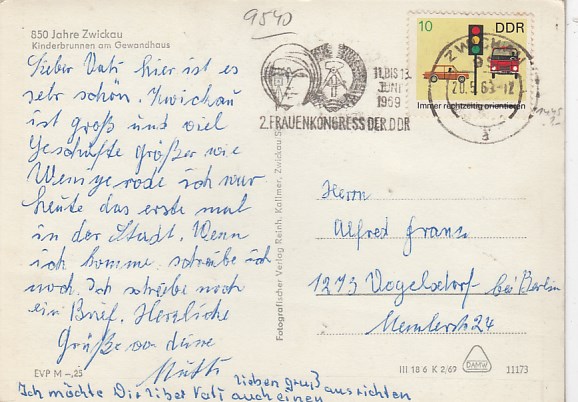 9540
850 Jahre Zwickau
Kinderbrunnen am Gewandhaus
Lieber Vati hier ist es
sehr schön. Zwickau
ist groß und viel
Geschäfte größer wie
Wenigerode ich war
heute das erste mal
in der Stadt. Wenn
ich komme schreibe ich
noch. Ich schreibe noch
ein Brief. Herzliche
Grüße von deine
Mutti
Ich möchte Dir liber Vati auch einen
lieben gruß ausrichten
EVP M –,25
Fotografischer Verlag Reinh. Kallmer, Zwickau
11. BIS 13.
JUNI
1969
2. FRAUENKONGRESS DER DDR
10 DDR
Immer rechtzeitig orientieren
ZWICKAU
Herrn
Alfred Franz
1273 Vogelsdorf bei Berlin
Memlerstr 24
III 18 6 K 2/69
DAMW
11173